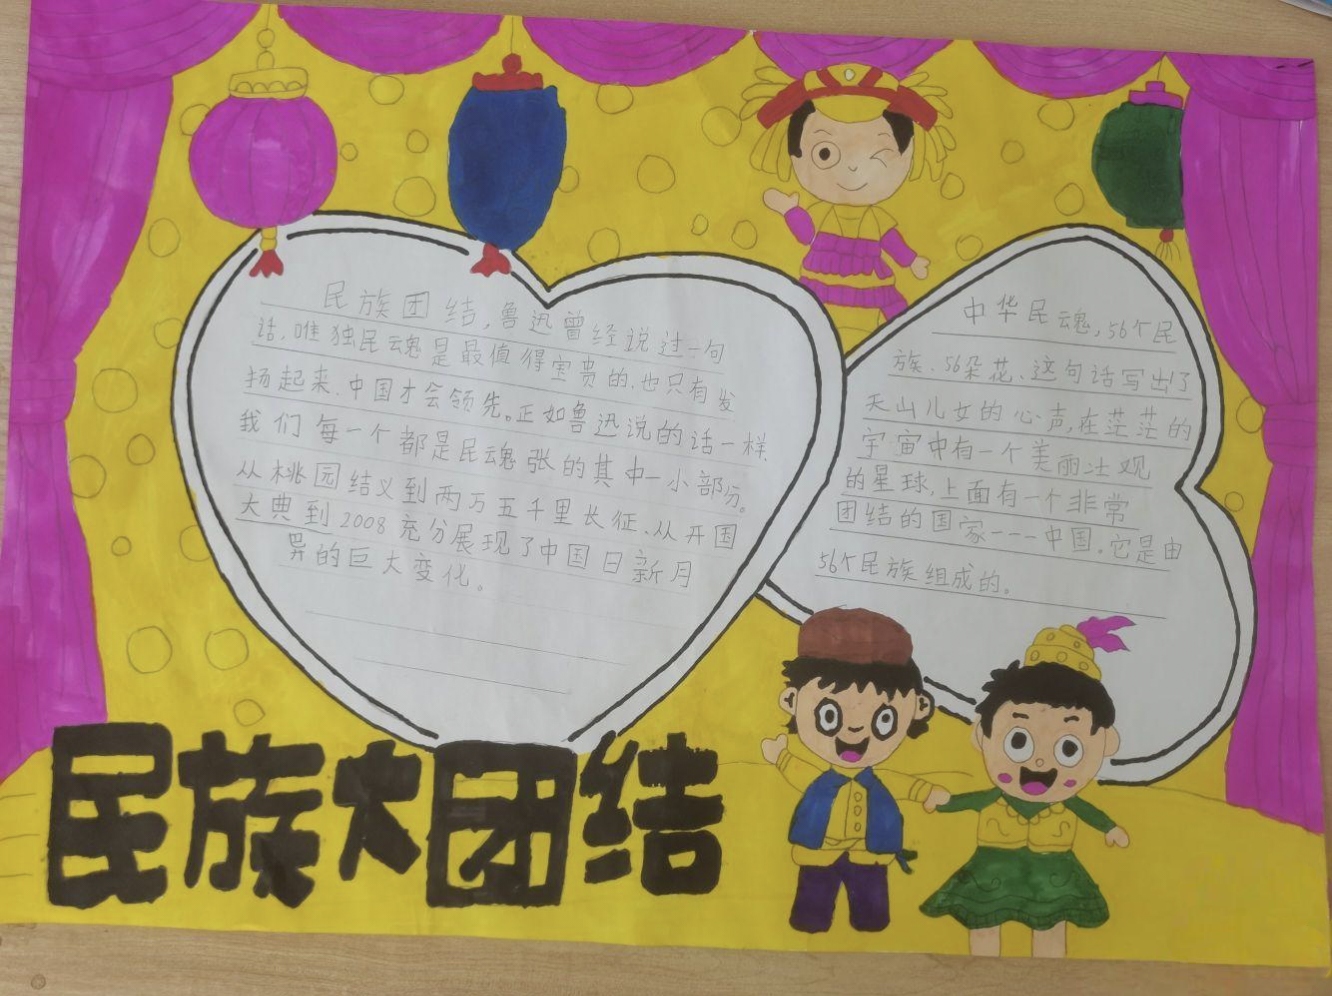 民族团结,鲁迅曾经说过一句
话,唯独民魂是最值得宝贵的,也只有发
扬起来、中国才会领先。正如鲁迅说的话一样
我们每一个都是民魂张的其中一小部分。
从桃园结义到两万五千里长征、从开国
大典到2008充分展现了中国日新月
异的巨大变化。
中华民魂,56个民
族、56朵花、这句话写出了
天山儿女的心声,在茫茫的
宇宙中有一个美丽壮观
的星球,上面有一个非常
团结的国家---中国.它是由
56个民族组成的。
民族大团结